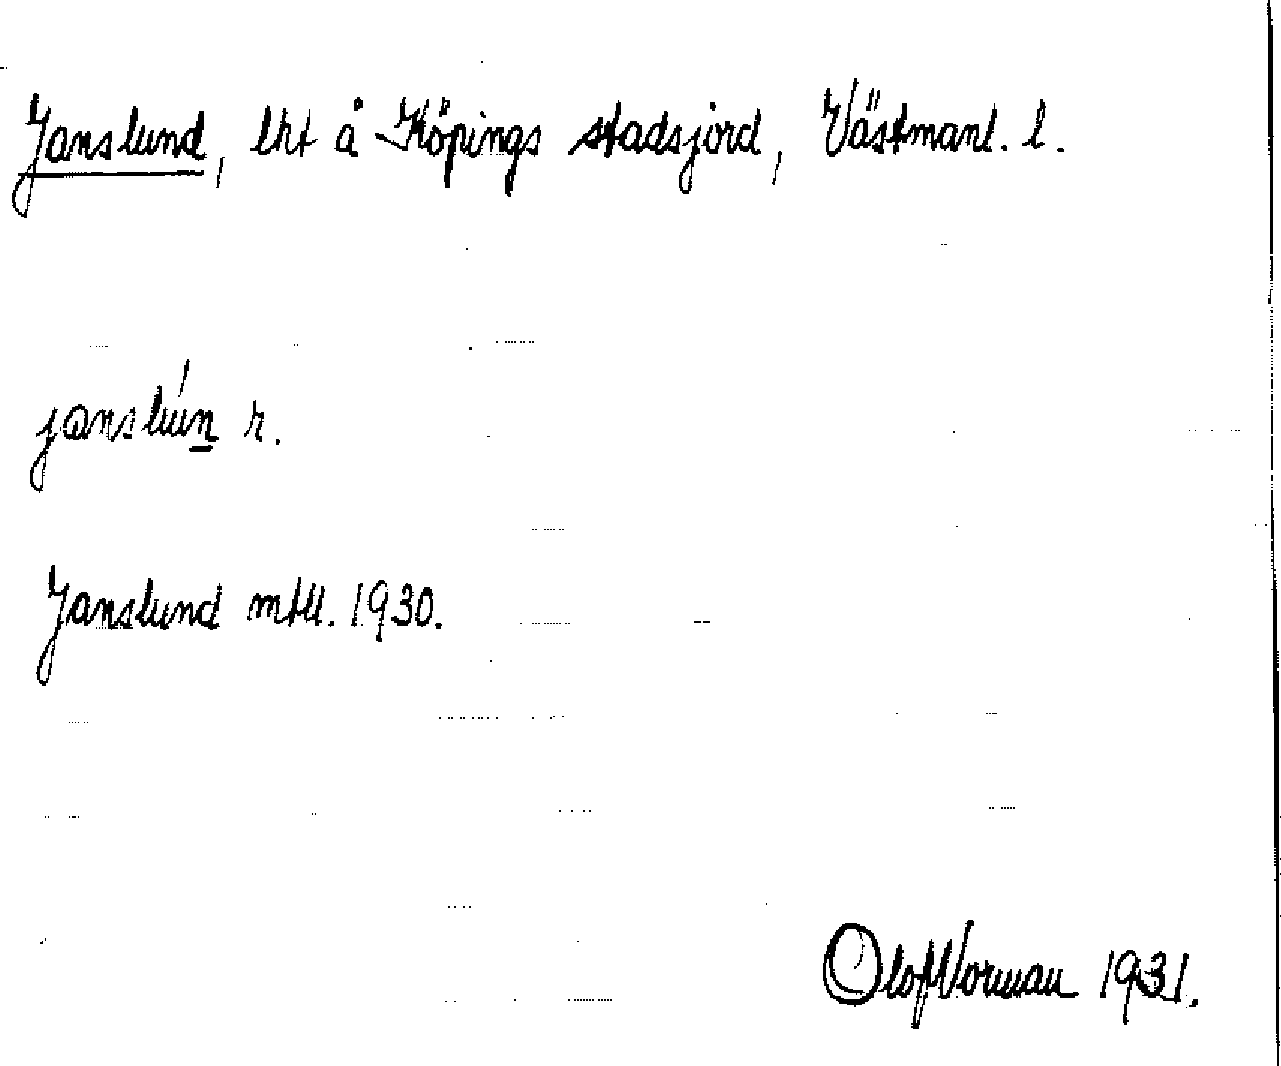 Janslund, lht å Köpings stadsjord, Västmanl. l.
janslún r.
Janslund mtll. 1930.
Olof Norman 1931.